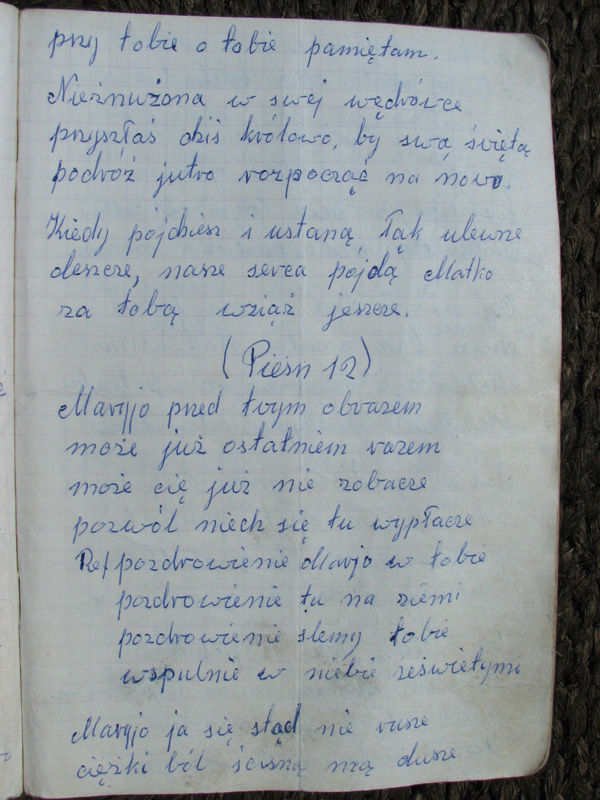 przy tobie o tobie pamiętam.
Nieznużona w swej wędrówce
przyszłaś dziś królowo, by swą świętą
podróż jutro rozpocząć na nowo.
Kiedy pójdziesz i ustaną tak ulewne
deszcze, nasze serca pójdą Matko
za tobą wziąż jeszcze.
(Pieśń 12)
Maryjo przed twym obrazem
może już ostatniem razem
może cię już nie zobacze
pozwól niech się tu wypłacze
Ref pozdrowienie Marjo w tobie
pozdrowienie tu na ziemi
pozdrowienie slemy tobie
wspulnie w niebie ześwietymi
Maryjo ja się stąd nie rusze
ciężki ból ścisną mą dusze